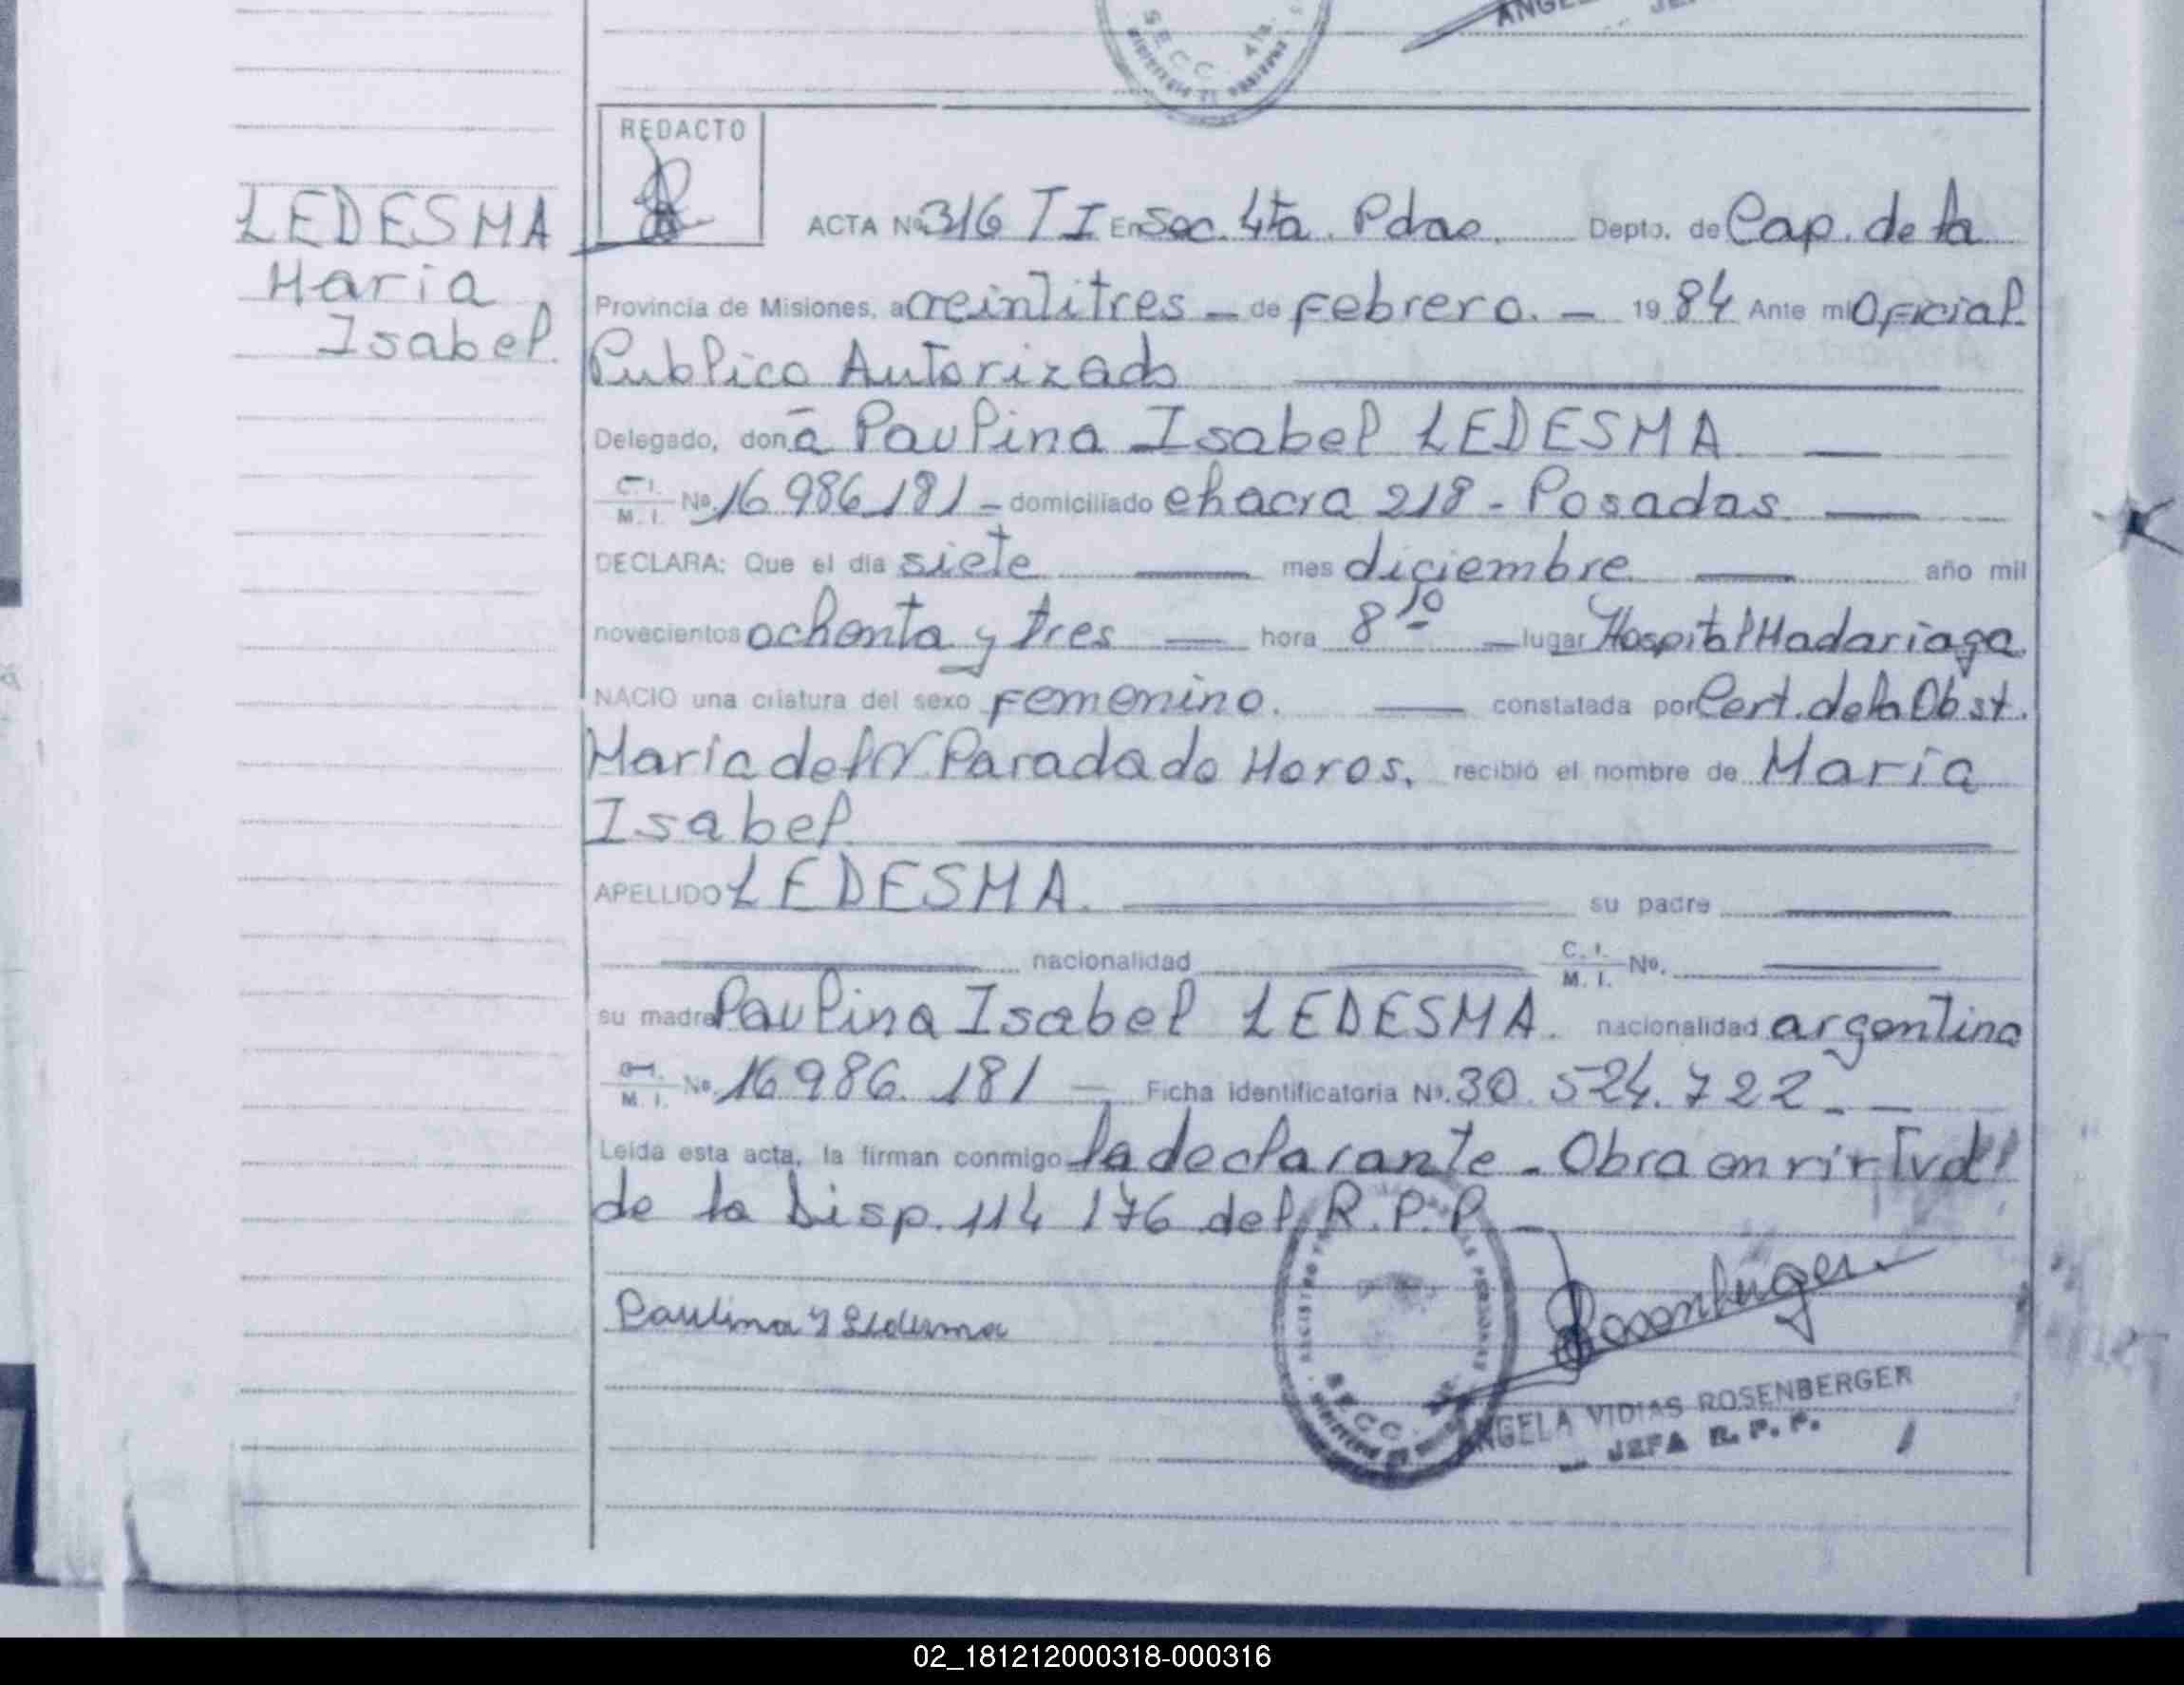 SECC. 4ta.
REDACTO
LEDESMA
Maria
Isabel
ACTA Nº 316 TI En Sec. 4ta. Pdas. Depto. de Cap. de la
Provincia de Misiones, a veintitres - de Febrero. - 1984 Ante mi Oficial
Publico Autorizado
Delegado, doña Paulina Isabel LEDESMA
C.I. M.I. Nº 16 986 181 - domiciliado chacra 218 - Posadas
DECLARA: Que el dia siete mes diciembre año mil
novecientos ochenta y tres hora 8 10 lugar Hospital Madariaga
NACIO una criatura del sexo Femenino. constatada por Cert. de la Obst.
Maria del Parada de Moros, recibió el nombre de Maria
Isabel
APELLIDO LEDESMA. su padre
nacionalidad C.I. M.I. Nº.
su madre Paulina Isabel LEDESMA. nacionalidad argentina
M.I. Nº 16 986. 181 - Ficha identificatoria Nº. 30. 524. 722 - -
Leida esta acta, la firman conmigo la declarante - Obra en
de la Disp. 114 176 del R.P.P
Paulina Y Ledesma
Rosenberger
SECC.
ANGELA VIDIAS ROSENBERGER
JEFA R. P. P.
02_181212000318-000316